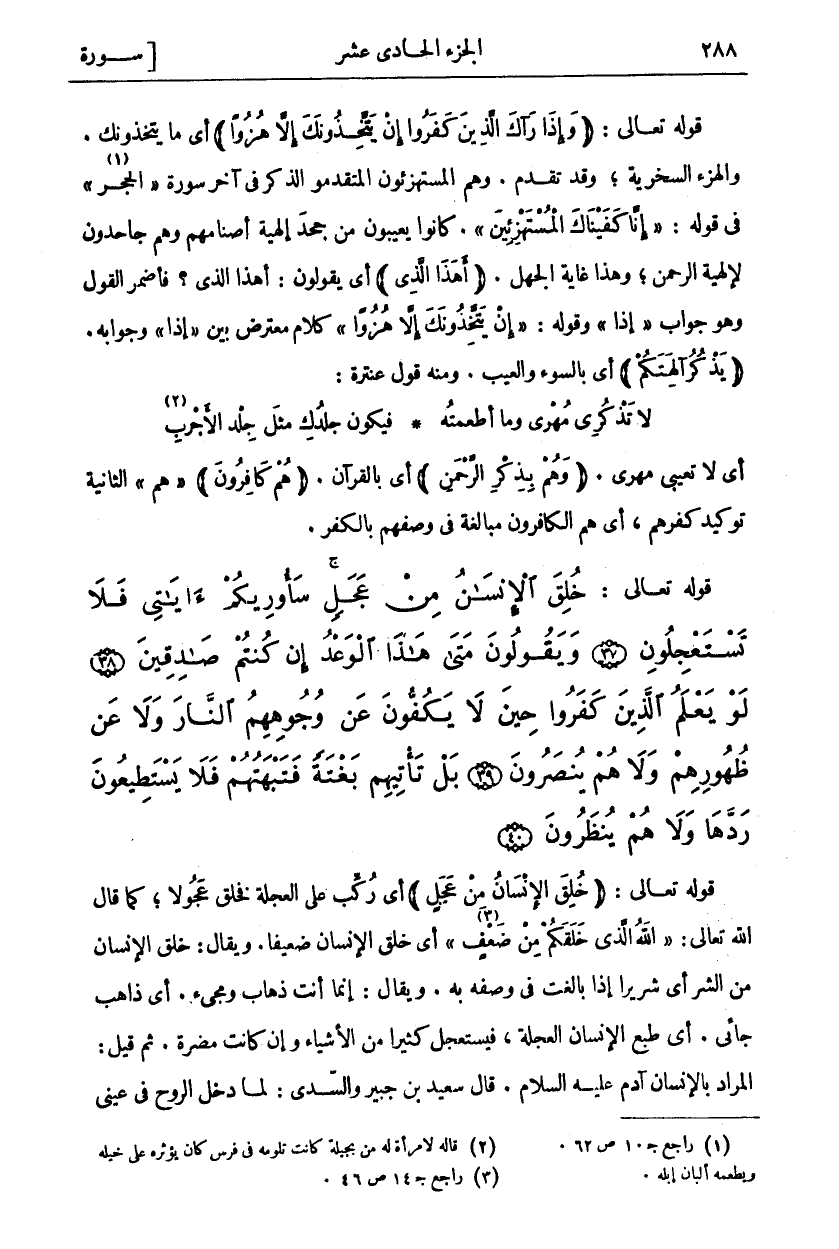 ٢٨٨ الجزء الحادى عشر [ سـورة
قوله تعـالى : ﴿ وَإِذَا رَآكَ الَّذِينَ كَفَرُوا إِنْ يَتَّخِذُونَكَ إِلَّا هُزُوًا ﴾ أى ما يتخذونك .
والهزء السخرية ؛ وقد تقـدم . وهم المستهزئون المتقدمو الذكر فى آخر سورة « الحِجـر (١) »
فى قوله : « إِنَّا كَفَيْنَاكَ الْمُسْتَهْزِئِينَ » . كانوا يعيبون من جحدَ إلهية أصنامهم وهم جاحدون
لإلهية الرحمن ؛ وهذا غاية الجهل . ﴿ أَهَذَا الَّذِى ﴾ أى يقولون : أهذا الذى ؟ فأضمر القول
وهو جواب « إذا » وقوله : « إِنْ يَتَّخِذُونَكَ إِلَّا هُزُوًا » كلام معترض بين «إذا» وجوابه .
﴿ يَذْكُرُ آلِهَتَكُمْ ﴾ أى بالسوء والعيب . ومنه قول عنترة :
لا تَذْكُرِى مُهْرِى وما أطعمتُه * فيكون جلدُكِ مثلَ جِلْد الأَجْربِ (٢)
أى لا تعيبى مهرى . ﴿ وَهُمْ بِذِكْرِ الرَّحْمَنِ ﴾ أى بالقرآن . ﴿ هُمْ كَافِرُونَ ﴾ « هم » الثانية
توكيد كفرهم ، أى هم الكافرون مبالغة فى وصفهم بالكفر .
قوله تعـالى : خُلِقَ ٱلْإِنسَـٰنُ مِنْ عَجَلٍۚ سَأُوْرِيكُمْ ءَايَـٰتِى فَـلَا
تَسْـتَعْجِلُونِ ﴿٣٧﴾ وَيَقُـولُونَ مَتَىٰ هَـٰذَا ٱلْوَعْدُ إِن كُنتُمْ صَـٰدِقِينَ ﴿٣٨﴾
لَوْ يَعْلَمُ ٱلَّذِينَ كَفَرُوا حِينَ لَا يَكُفُّونَ عَن وُجُوهِهِمُ ٱلنَّـارَ وَلَا عَن
ظُهُورِهِمْ وَلَا هُمْ يُنصَرُونَ ﴿٣٩﴾ بَلْ تَأْتِيهِم بَغْتَةً فَتَبْهَتُهُمْ فَلَا يَسْتَطِيعُونَ
رَدَّهَا وَلَا هُمْ يُنظَرُونَ ﴿٤٠﴾
قوله تعـالى : ﴿ خُلِقَ الْإِنْسَانُ مِنْ عَجَلٍ ﴾ أى رُكّب على العجلة فخلق عَجُولا ؛ كما قال
الله تعالى : « اللهُ الَّذى خَلَقَكُمْ مِنْ ضَعْفٍ (٣) » أى خلق الإنسان ضعيفا . ويقال : خلق الإنسان
من الشر أى شريرا إذا بالغت فى وصفه به . ويقال : إنما أنت ذهاب ومجىء . أى ذاهب
جائى . أى طبع الإنسان العجلة ، فيستعجل كثيرا من الأشياء وإن كانت مضرة . ثم قيل :
المراد بالإنسان آدم عليـه السلام . قال سعيد بن جبير والسّـدى : لمـا دخل الروح فى عينى
(١) راجع جـ ١٠ ص ٦٢ . (٢) قاله لامرأة له من بجيلة كانت تلومه فى فرس كان يؤثره على خيله
ويطعمه ألبان إبله . (٣) راجع جـ ١٤ ص ٤٦ .